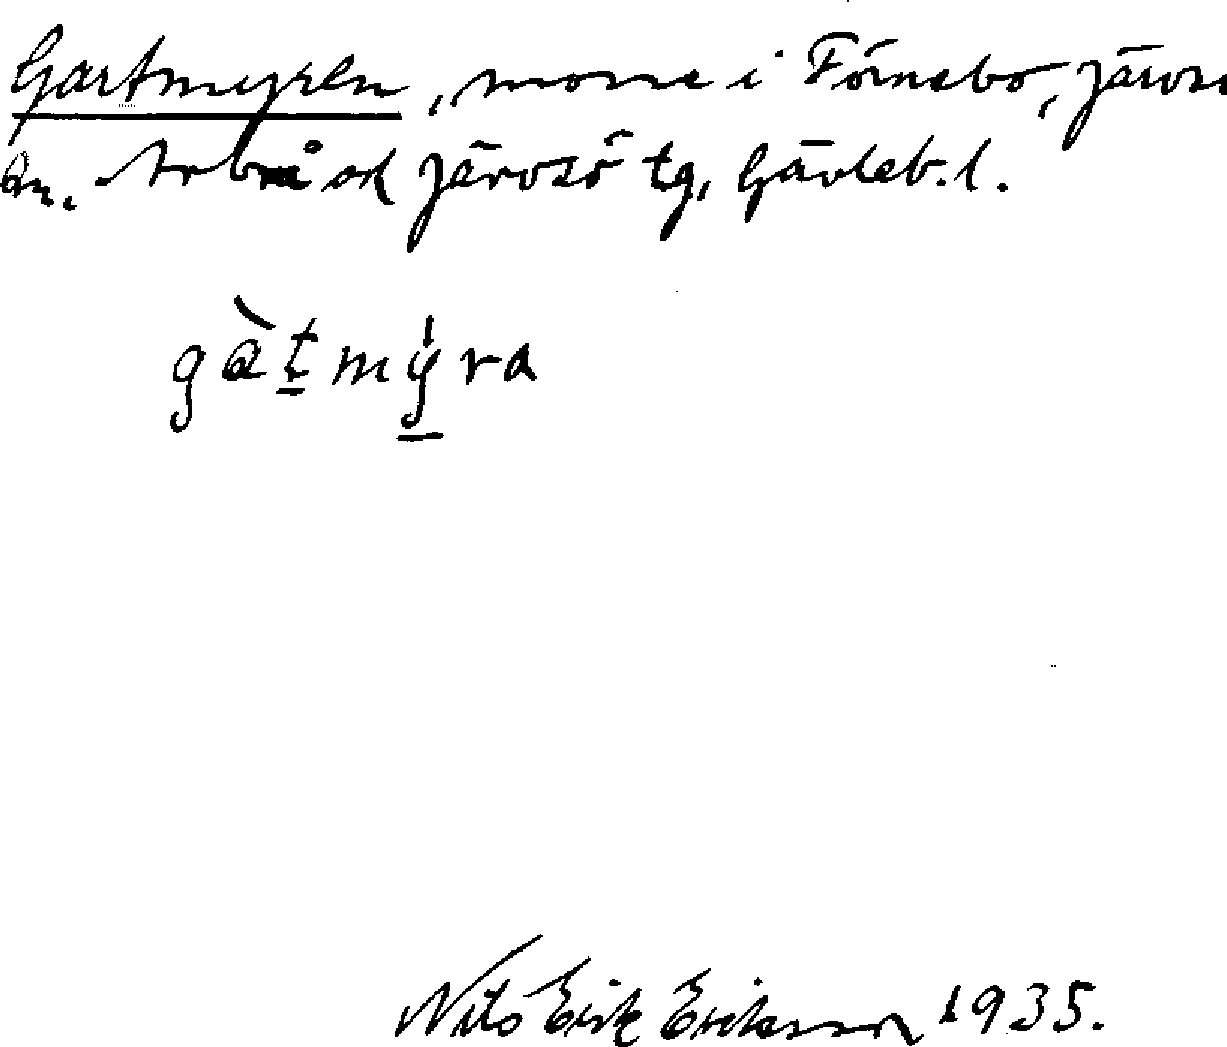 Gartmyren, mosse i Förnebo, Järvsö
sn. Arbrå och Järvsö tg, Gävleb. l.
gàt̲mý̲ra
Nils Erik Eriksson 1935.